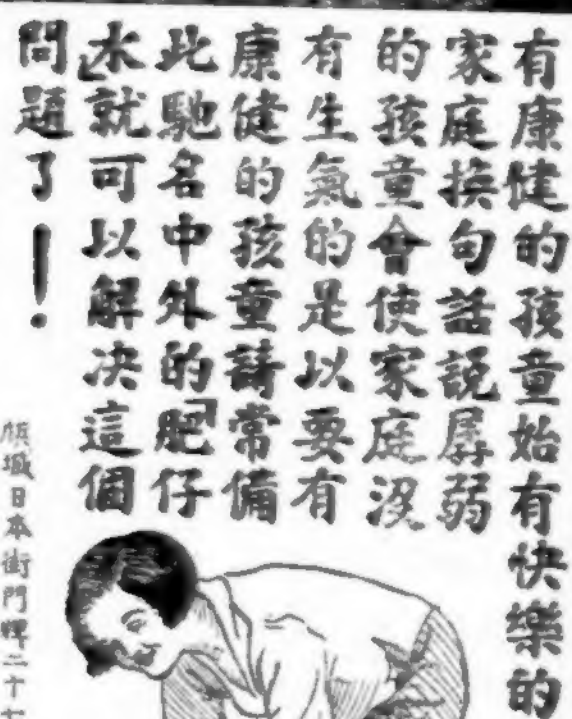 有康健的孩童始有快樂的
家庭換句話說孱弱
的孩童會使家庭沒
有生氣的是以要有
康健的孩童請常備
此馳名中外的「肥仔
水」就可以解决這個
問題了！
日本街門牌二十七